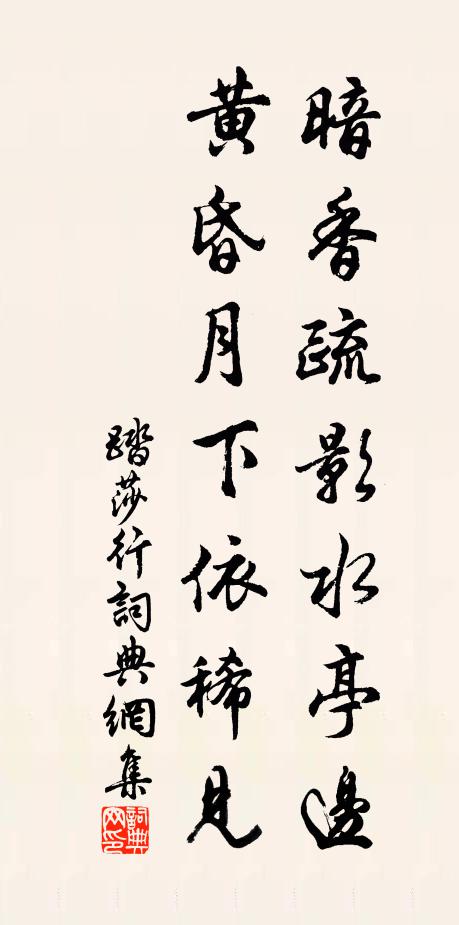 暗香疏影水亭邊
黄昏月下依稀見
踏莎行詞典網集
詞典網印